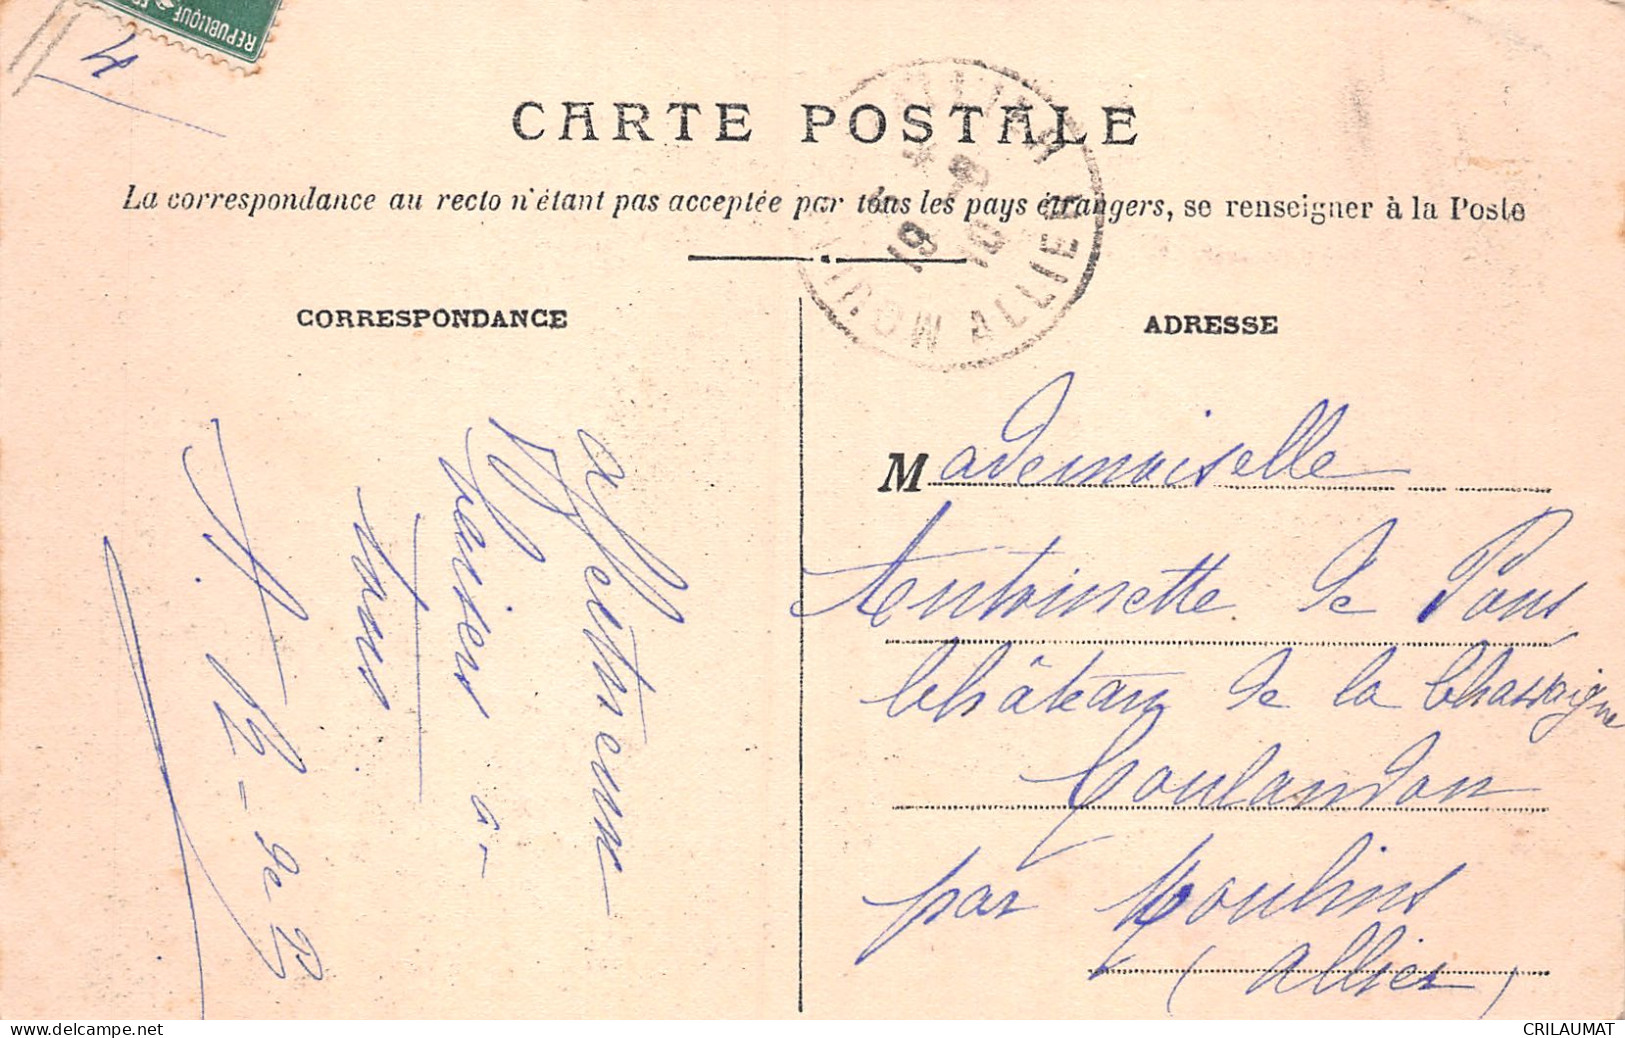 REPUBLIQUE
4
CARTE POSTALE
La correspondance au recto n'étant pas acceptée par tous les pays étrangers, se renseigner à la Poste
MOULINS ALLIER
19 10
CORRESPONDANCE
ADRESSE
Affectueux
baisers à
tous
B. de B.
Mademoiselle
Antoinette de Pons
Château de la Chassaigne
Coulandon
par Moulins
(Allier)
www.delcampe.net
CRILAUMAT